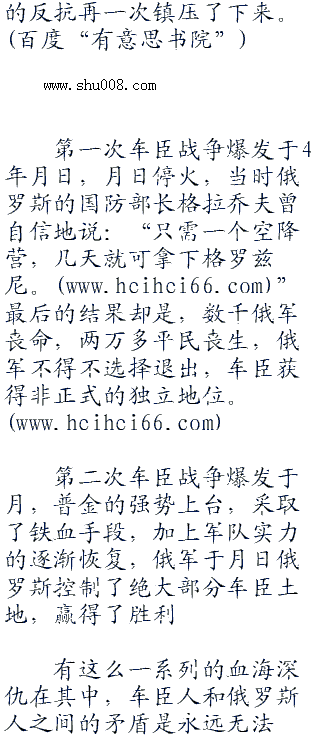 的反抗再一次镇压了下来。
(百度“有意思书院”)
www.shu008.com
第一次车臣战争爆发于4
年月日，月日停火，当时俄
罗斯的国防部长格拉乔夫曾
自信地说：“只需一个空降
营，几天就可拿下格罗兹
尼。(www.hcihci66.com)”
最后的结果却是，数千俄军
丧命，两万多平民丧生，俄
军不得不选择退出，车臣获
得非正式的独立地位。
(www.hcihci66.com)
第二次车臣战争爆发于
月，普金的强势上台，采取
了铁血手段，加上军队实力
的逐渐恢复，俄军于月日俄
罗斯控制了绝大部分车臣土
地，赢得了胜利
有这么一系列的血海深
仇在其中，车臣人和俄罗斯
人之间的矛盾是永远无法